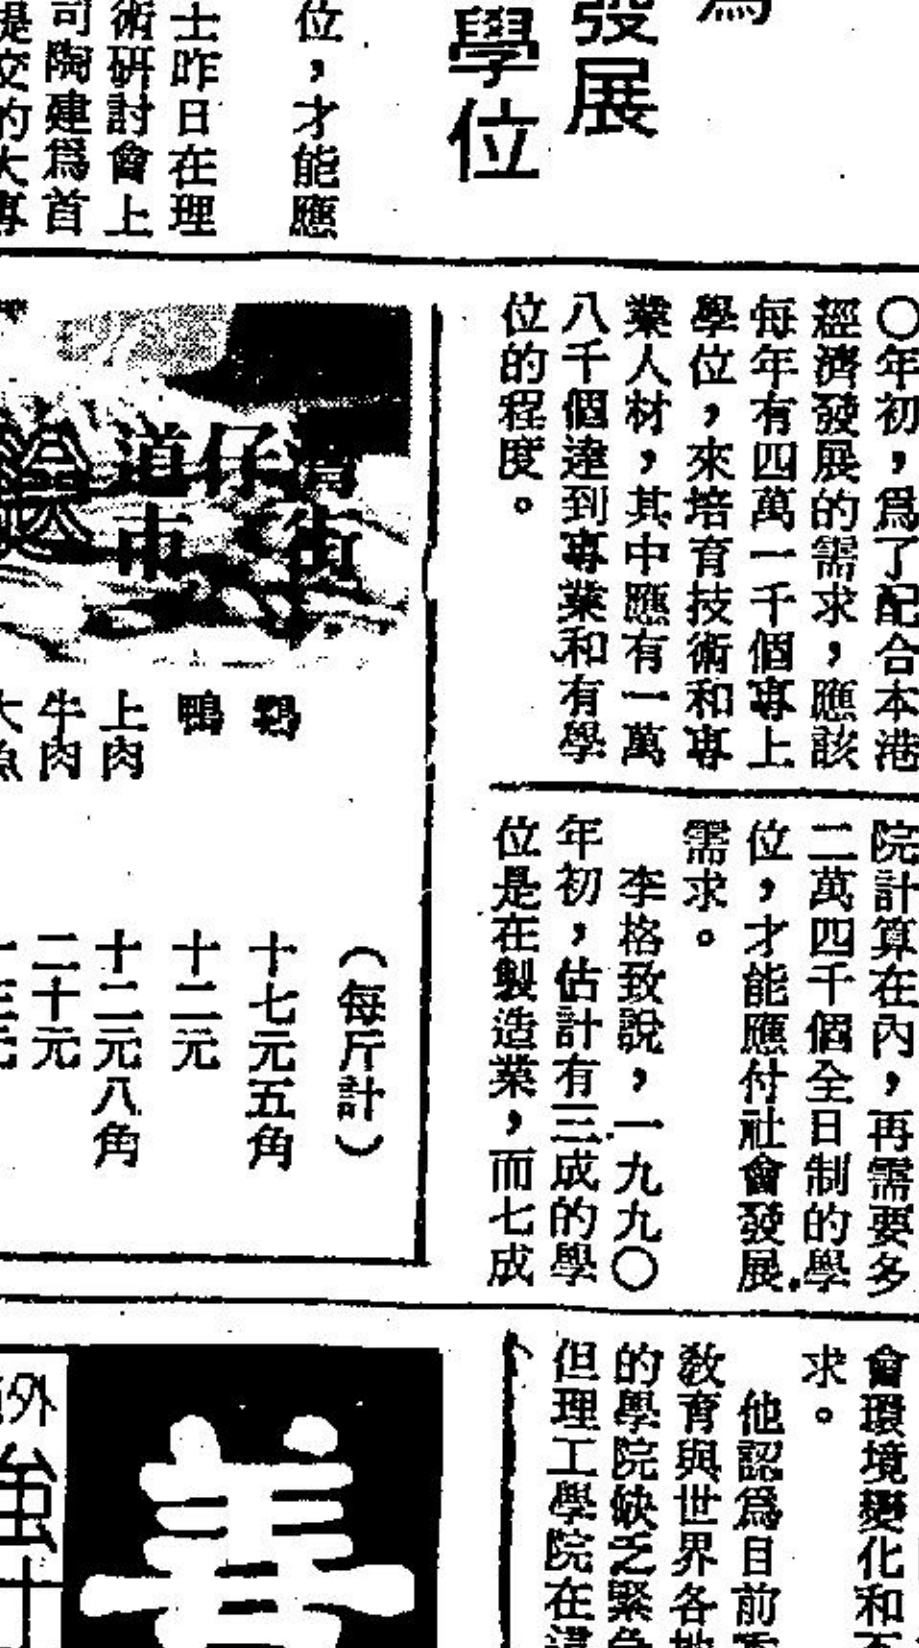 為
發展
學位
位，才能應
士昨日在理
術研討會上
司陶建爲首
提交的大專
〇年初，爲了配合本港
經濟發展的需求，應該
每年有四萬一千個專上
學位，來培育技術和專
業人材，其中應有一萬
八千個達到專業和有學
位的程度。
院計算在內，再需要多
二萬四千個全日制的學
位，才能應付社會發展
需求。
李格致說，一九九〇
年初，估計有三成的學
位是在製造業，而七成
會環境變化和
求。
他認爲目前
教育與世界各地
的學院缺乏緊急
但理工學院在這
灣仔道
街市
（每斤計）
鷄 十七元五角
鴨 十二元
上肉 十二元八角
牛肉 二十元
大魚 十三元
善
外
強